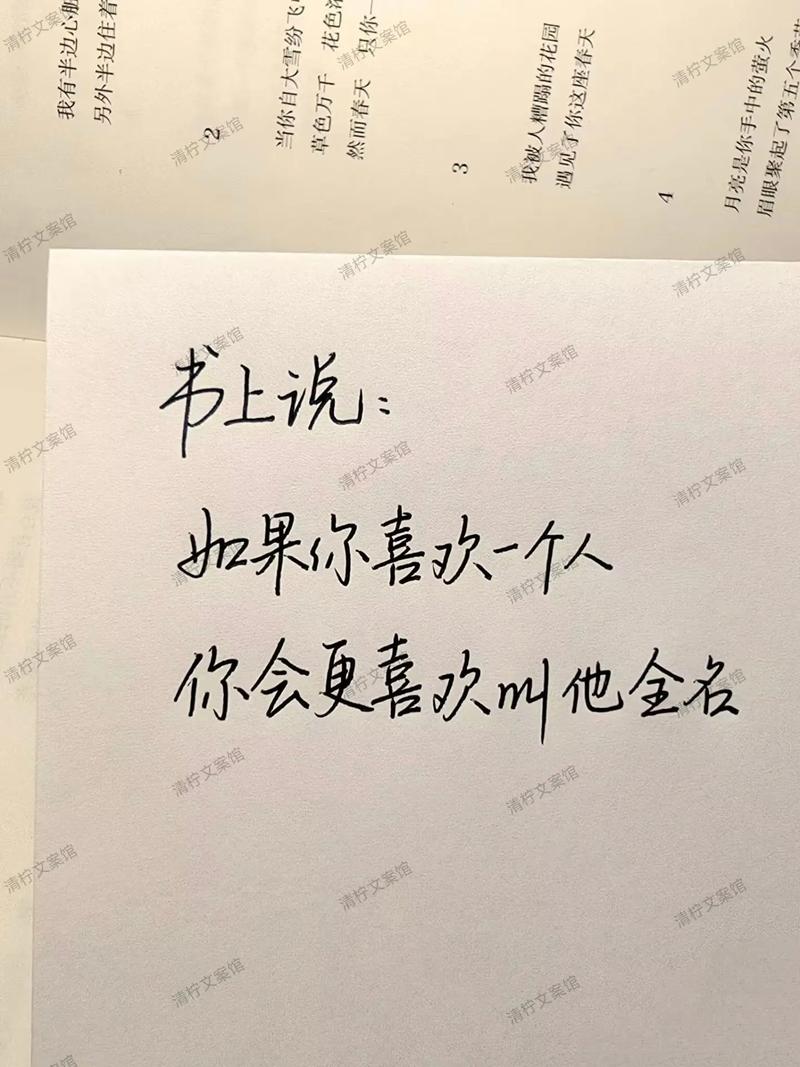 我有半边心脏
另外半边住着
2
当你自大雪纷飞中
草色万千 花色浓
然而春天 只你一
3
我被人糟蹋的花园
遇见了你这座春天
4
月亮是你手中的萤火
眉眼聚起了第五个季节
书上说：
如果你喜欢一个人
你会更喜欢叫他全名
清柠文案馆